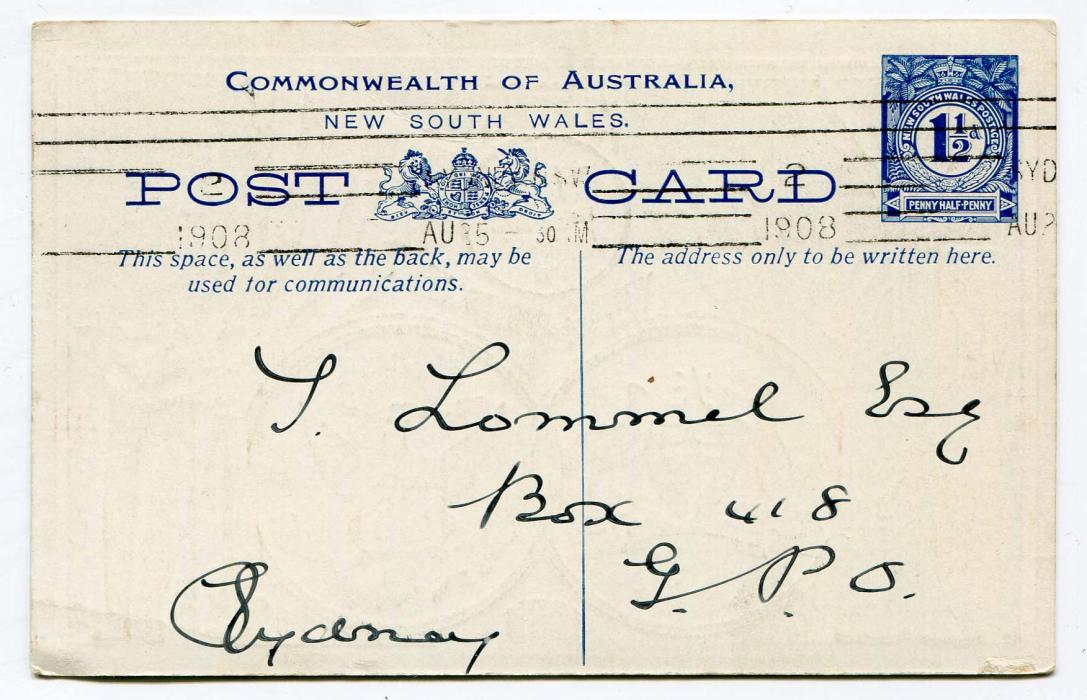 COMMONWEALTH OF AUSTRALIA,
NEW SOUTH WALES.
POST CARD
NEW SOUTH WALES POSTCARD
1½d
PENNY HALF-PENNY
2
SYD
1908
AU 25 - 30 M
1908
AU 2
This space, as well as the back, may be
used for communications.
The address only to be written here.
T. Lommel Esq
Box 418
G. P. O.
Sydney